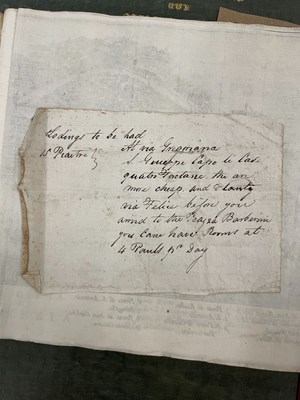 Lodings to be had
At via Gregoriana
S. Giuseppe Capo le Cas
quatro Fontane the are
more cheap and
via Felice before you
arived to the Piazza Barberini
you cane have Rooms at
4 Pauls pr Day